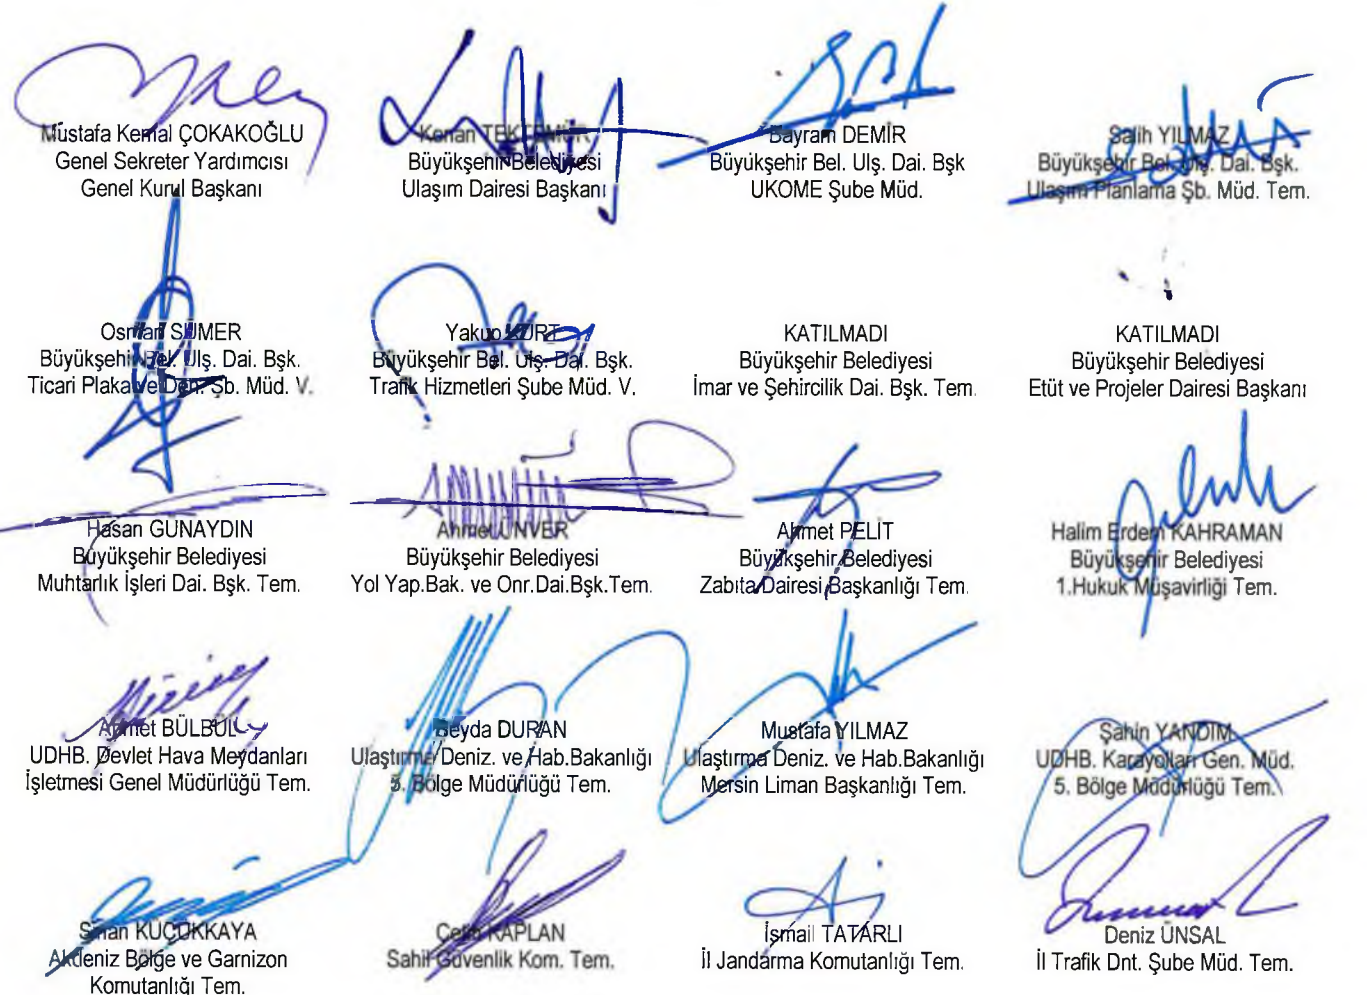 Mustafa Kemal ÇOKAKOĞLU
Genel Sekreter Yardımcısı
Genel Kurul Başkanı
Kenan TEKTEMUR
Büyükşehir Belediyesi
Ulaşım Dairesi Başkanı
Bayram DEMİR
Büyükşehir Bel. Ulş. Dai. Bşk
UKOME Şube Müd.
Salih YILMAZ
Büyükşehir Bel. Ulş. Dai. Bşk.
Ulaşım Planlama Şb. Müd. Tem.
Osman SÜMER
Büyükşehir Bel. Ulş. Dai. Bşk.
Ticari Plaka ve Den. Şb. Müd. V.
Yakup KURT
Büyükşehir Bel. Ulş. Dai. Bşk.
Trafik Hizmetleri Şube Müd. V.
KATILMADI
Büyükşehir Belediyesi
İmar ve Şehircilik Dai. Bşk. Tem.
KATILMADI
Büyükşehir Belediyesi
Etüt ve Projeler Dairesi Başkanı
Hasan GÜNAYDIN
Büyükşehir Belediyesi
Muhtarlık İşleri Dai. Bşk. Tem.
Ahmet ÜNVER
Büyükşehir Belediyesi
Yol Yap.Bak. ve Onr.Dai.Bşk.Tem.
Ahmet PELİT
Büyükşehir Belediyesi
Zabıta Dairesi Başkanlığı Tem.
Halim Erdem KAHRAMAN
Büyükşehir Belediyesi
1.Hukuk Müşavirliği Tem.
Ahmet BÜLBÜL
UDHB. Devlet Hava Meydanları
İşletmesi Genel Müdürlüğü Tem.
Beyda DURAN
Ulaştırma Deniz. ve Hab.Bakanlığı
5. Bölge Müdürlüğü Tem.
Mustafa YILMAZ
Ulaştırma Deniz. ve Hab.Bakanlığı
Mersin Liman Başkanlığı Tem.
Şahin YANDIM
UDHB. Karayolları Gen. Müd.
5. Bölge Müdürlüğü Tem.
Sinan KÜÇÜKKAYA
Akdeniz Bölge ve Garnizon
Komutanlığı Tem.
KAPLAN
Sahil Güvenlik Kom. Tem.
İsmail TATARLI
İl Jandarma Komutanlığı Tem.
Deniz ÜNSAL
İl Trafik Dnt. Şube Müd. Tem.